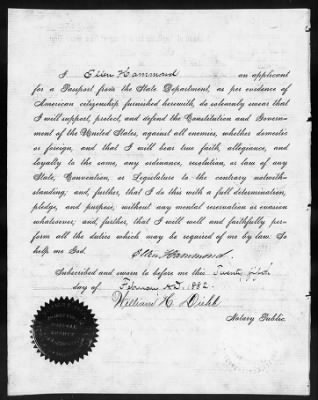 I Ellen Hammond an applicant
for a Passport from the State Department, as per evidence of
American citizenship furnished herewith, do solemnly swear that
I will support, protect, and defend the Constitution and Govern-
ment of the United States, against all enemies, whether domestic
or foreign, and that I will bear true faith, allegiance, and
loyalty to the same, any ordinance, resolution, or law of any
State, Convention, or Legislature to the contrary notwith-
standing; and, further, that I do this with a full determination,
pledge, and purpose, without any mental reservation or evasion
whatsoever; and, further, that I will well and faithfully per-
form all the duties which may be required of me by law. So
help me God.
Ellen Hammond.
Subscribed and sworn to before me this Twenty fifth
day of February A.D. 1882.
William H. Diehl
Notary Public.